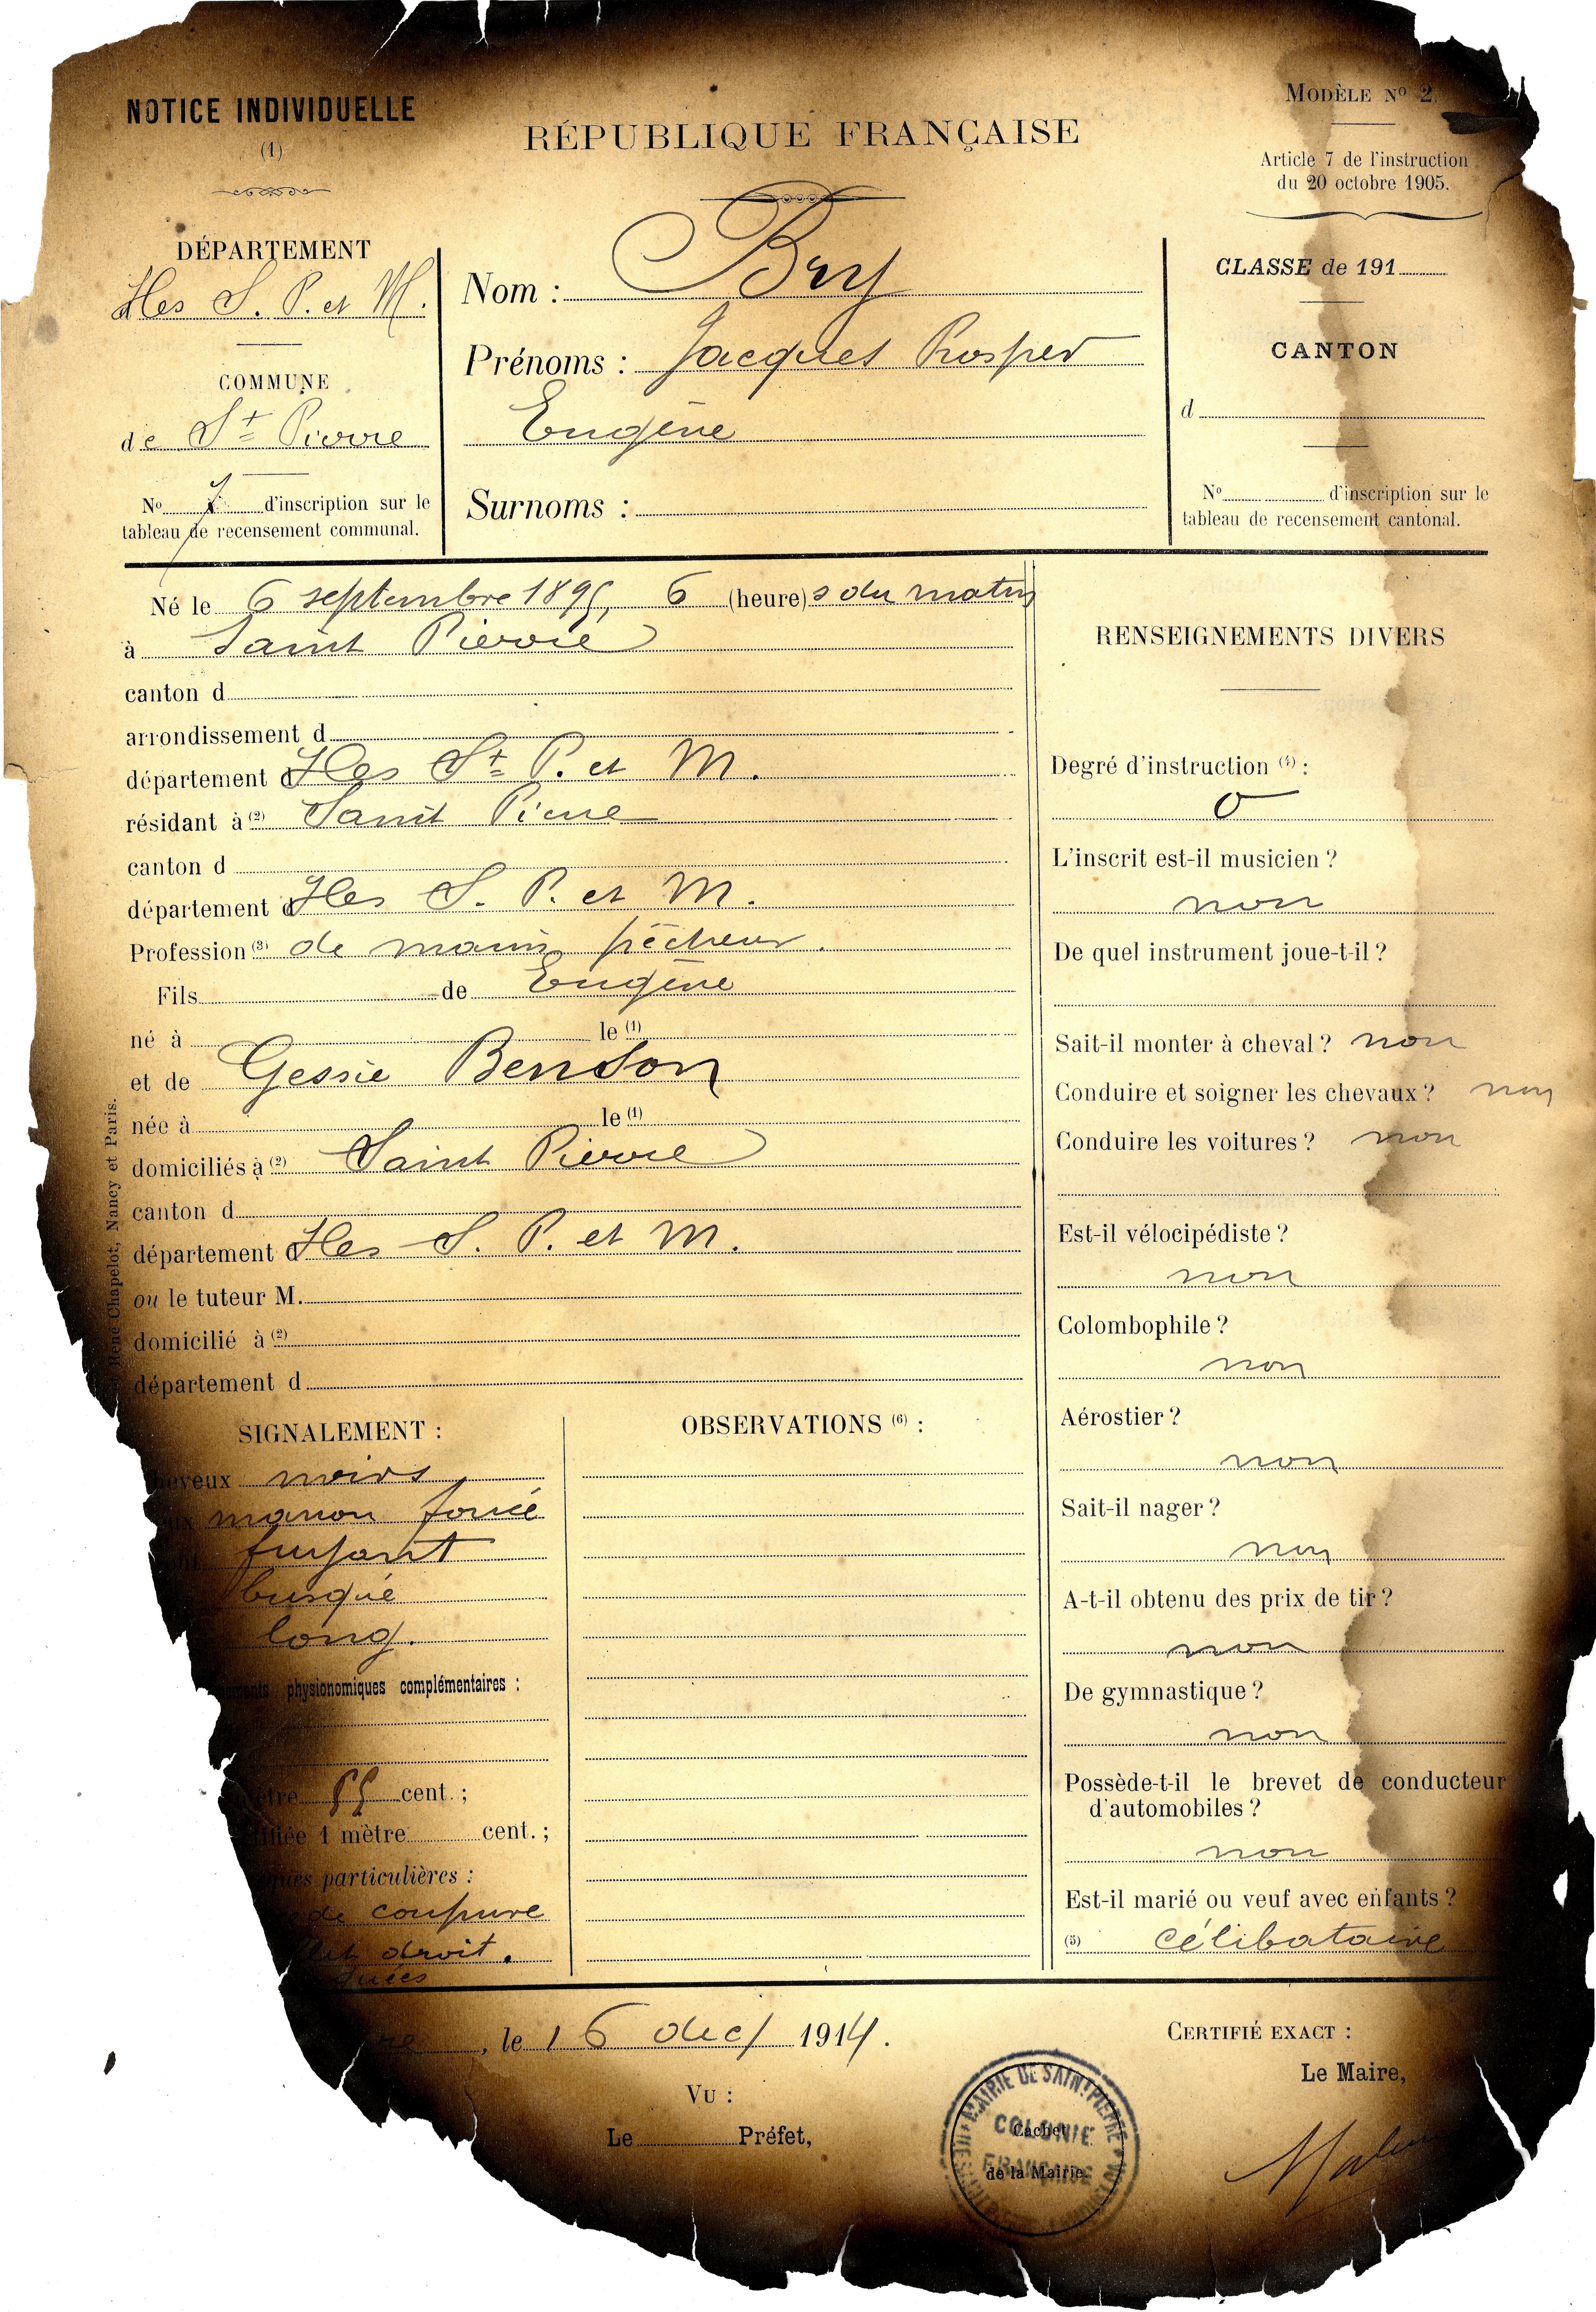 NOTICE INDIVIDUELLE
(1)
RÉPUBLIQUE FRANÇAISE
MODÈLE Nº 2.
Article 7 de l'instruction
du 20 octobre 1905.
DÉPARTEMENT
Iles S. P. et M.
COMMUNE
de St Pierre
No 7 d'inscription sur le
tableau de recensement communal.
Nom : Bry
Prénoms : Jacques Prosper
Eugène
Surnoms :
CLASSE de 191
CANTON
d
No d'inscription sur le
tableau de recensement cantonal.
Né le 6 septembre 1895, 6 (heure)s du matin
à Saint Pierre
canton d
arrondissement d
département d Iles St P. et M.
résidant à (2) Saint Pierre
canton d
département d Iles S. P. et M.
Profession (3) de marin pêcheur.
Fils de Eugène
né à le (1)
et de Gessie Benson
née à le (1)
domiciliés à (2) Saint Pierre
canton d
département d Iles S. P. et M.
ou le tuteur M.
domicilié à (2)
département d
René Chapelot, Nancy et Paris.
RENSEIGNEMENTS DIVERS
Degré d'instruction (4) :
0
L'inscrit est-il musicien ?
non
De quel instrument joue-t-il ?
Sait-il monter à cheval ? non
Conduire et soigner les chevaux ? non
Conduire les voitures ? non
Est-il vélocipédiste ?
non
Colombophile ?
non
Aérostier ?
non
Sait-il nager ?
non
A-t-il obtenu des prix de tir ?
non
De gymnastique ?
non
Possède-t-il le brevet de conducteur
d'automobiles ?
non
Est-il marié ou veuf avec enfants ?
(5) célibataire
SIGNALEMENT :
heveux noirs
ux marron foncé
ont fuyant
busqué
long.
physionomiques complémentaires :
ètre 55 cent. ;
ifiée 1 mètre cent. ;
ques particulières :
de coupure
droit.
OBSERVATIONS (6) :
re, le 16 dec/ 1914.
VU :
Le Préfet,
MAIRIE DE SAINT PIERRE
COLONIE
FRANÇAISE
Cachet
de la Mairie.
CERTIFIÉ EXACT :
Le Maire,